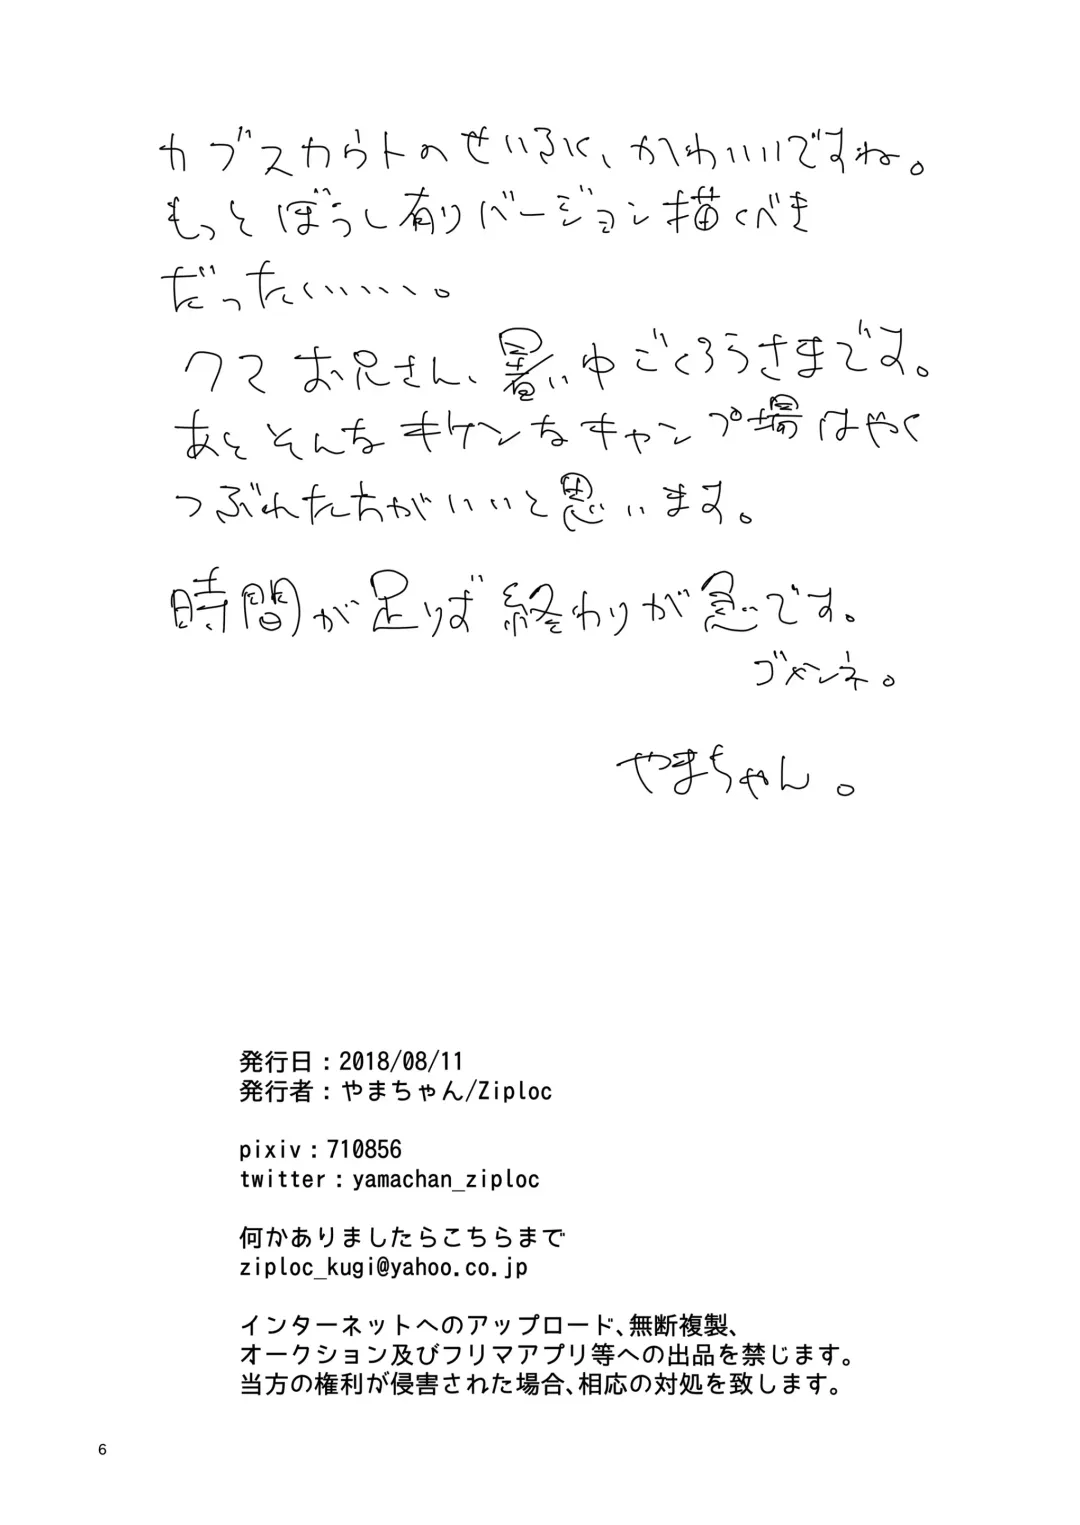 カブスカウトのせいふく、かわいいですね。
もっとぼうし有りバージョン描くべき
だったくい、、、、。
クマお兄さん、暑い中ごくろうさまです。
あとそんなキケンなキャンプ場はやく
つぶれた方がいいと思います。
時間が足りず終わりが急です。
ゴメンネ。
やまちゃん。
発行日：2018/08/11
発行者：やまちゃん/Ziploc
pixiv：710856
twitter：yamachan_ziploc
何かありましたらこちらまで
ziploc_kugi@yahoo.co.jp
インターネットへのアップロード、無断複製、
オークション及びフリマアプリ等への出品を禁じます。
当方の権利が侵害された場合、相応の対処を致します。
6